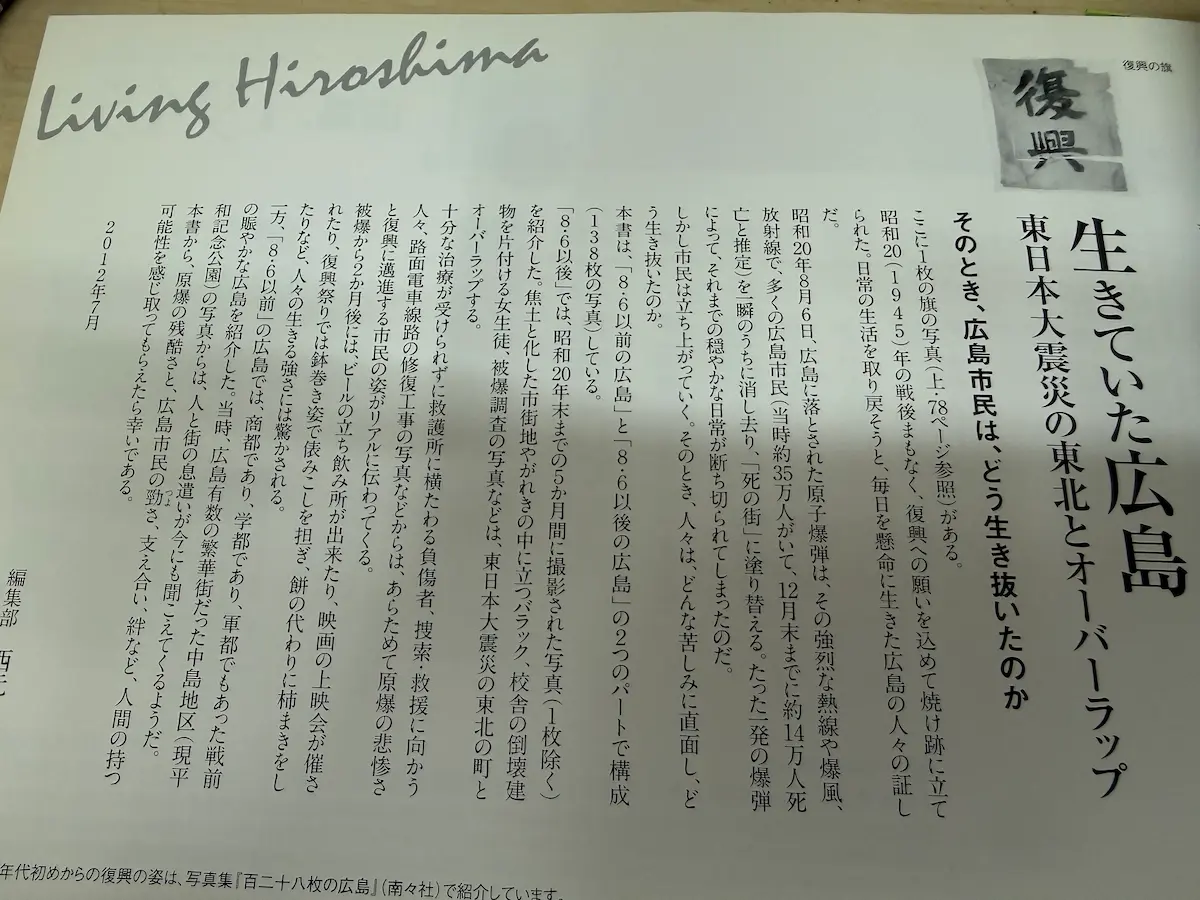 Living Hiroshima
復興の旗
復興
生きていた広島
東日本大震災の東北とオーバーラップ
そのとき、広島市民は、どう生き抜いたのか
ここに1枚の旗の写真(上・78ページ参照)がある。
昭和20(1945)年の戦後まもなく、復興への願いを込めて焼け跡に立て
られた。日常の生活を取り戻そうと、毎日を懸命に生きた広島の人々の証し
だ。
昭和20年8月6日、広島に落とされた原子爆弾は、その強烈な熱線や爆風、
放射線で、多くの広島市民(当時約35万人がいて、12月末までに約14万人死
亡と推定)を一瞬のうちに消し去り、「死の街」に塗り替える。たった一発の爆弾
によって、それまでの穏やかな日常が断ち切られてしまったのだ。
しかし市民は立ち上がっていく。そのとき、人々は、どんな苦しみに直面し、ど
う生き抜いたのか。
本書は、「8・6以前の広島」と「8・6以後の広島」の2つのパートで構成
(138枚の写真)している。
「8・6以後」では、昭和20年末までの5か月間に撮影された写真(1枚除く)
を紹介した。焦土と化した市街地やがれきの中に立つバラック、校舎の倒壊建
物を片付ける女生徒、被爆調査の写真などは、東日本大震災の東北の町と
オーバーラップする。
十分な治療が受けられずに救護所に横たわる負傷者、捜索・救援に向かう
人々、路面電車線路の修復工事の写真などからは、あらためて原爆の悲惨さ
と復興に邁進する市民の姿がリアルに伝わってくる。
被爆から2か月後には、ビールの立ち飲み所が出来たり、映画の上映会が催さ
れたり、復興祭りでは鉢巻き姿で俵みこしを担ぎ、餅の代わりに柿まきをし
たりなど、人々の生きる強さには驚かされる。
一方、「8・6以前」の広島では、商都であり、学都であり、軍都でもあった戦前
の賑やかな広島を紹介した。当時、広島有数の繁華街だった中島地区(現平
和記念公園)の写真からは、人と街の息遣いが今にも聞こえてくるようだ。
本書から、原爆の残酷さと、広島市民の勁(つよ)さ、支え合い、絆など、人間の持つ
可能性を感じ取ってもらえたら幸いである。
2012年7月
編集部 西元
年代初めからの復興の姿は、写真集『百二十八枚の広島』(南々社)で紹介しています。